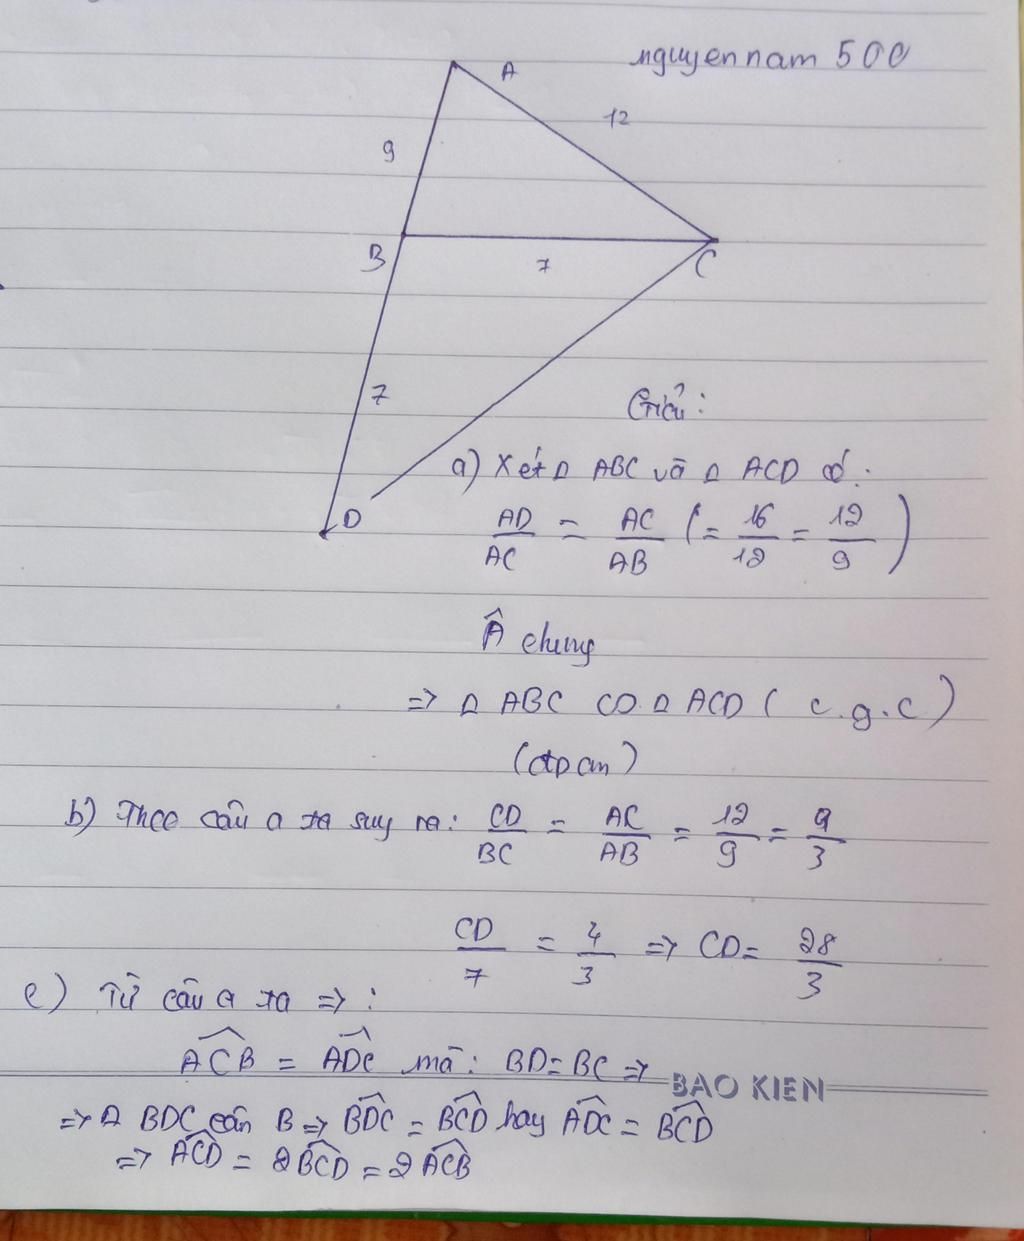 nguyennam 500
A
12
9
B
7
C
7
D
Giải:
a) Xét Δ ABC và Δ ACD có:
AD/AC = AC/AB (= 16/12 = 12/9)
Â chung
=> Δ ABC ∽ Δ ACD ( c.g.c )
(đpcm)
b) Theo câu a ta suy ra: CD/BC = AC/AB = 12/9 = 4/3
CD/7 = 4/3 => CD = 28/3
c) Từ câu a ta => :
ACB^ = ADC^ mà: BD = BC =>
BAO KIEN
=> Δ BDC cân B => BDC^ = BCD^ hay ADC^ = BCD^
=> ACD^ = 2BCD^ = 2ACB^